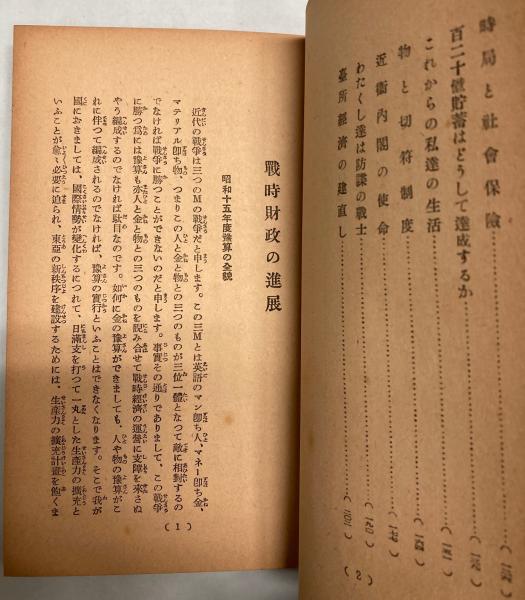 時局と社會保險
百二十億貯蓄はどうして達成するか
これからの私達の生活
物と切符制度
近衞內閣の使命
わたくし達は防諜の戰士
臺所經濟の建直し
(2)
戰時財政の進展
昭和十五年度豫算の全貌
近代の戰爭は三つのMの戰爭だと申します。この三Mとは英語のマン卽ち人、マネー卽ち金、
マテリアル卽ち物、つまりこの人と金と物との三つのものが三位一體となつて敵に相對するの
でなければ戰爭に勝つことができないのだと申します。事實その通りでありまして、この戰爭
に勝つ爲には豫算も亦人と金と物との三つのものを睨み合せて戰時經濟の運營に支障を來さぬ
やう編成するのでなければ駄目なのです。如何に金の豫算ができましても、人や物の豫算がこ
れに伴つて編成されるのでなければ、豫算の實行といふことはできなくなります。そこで我が
國におきましては、國際情勢が變化するにつれて、日滿支を打つて一丸とした生產力の擴充と
いふことが愈〻必要に迫られ、東亞の新秩序を建設するためには、生產力の擴充計畫を飽くま
(1)